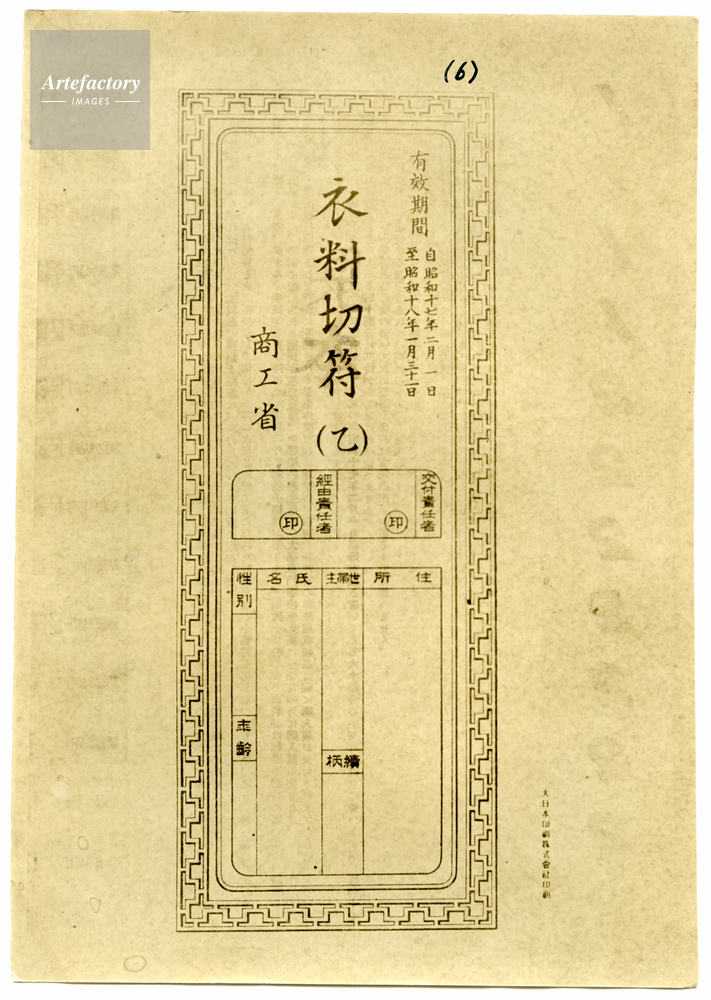 Artefactory
IMAGES
(6)
有效期間
自昭和十七年二月一日
至昭和十八年一月三十一日
衣料切符(乙)
商工省
交付責任者
印
經由責任者
印
住所
世帶主
續柄
氏名
性別
年齡
大日本印刷株式會社印刷